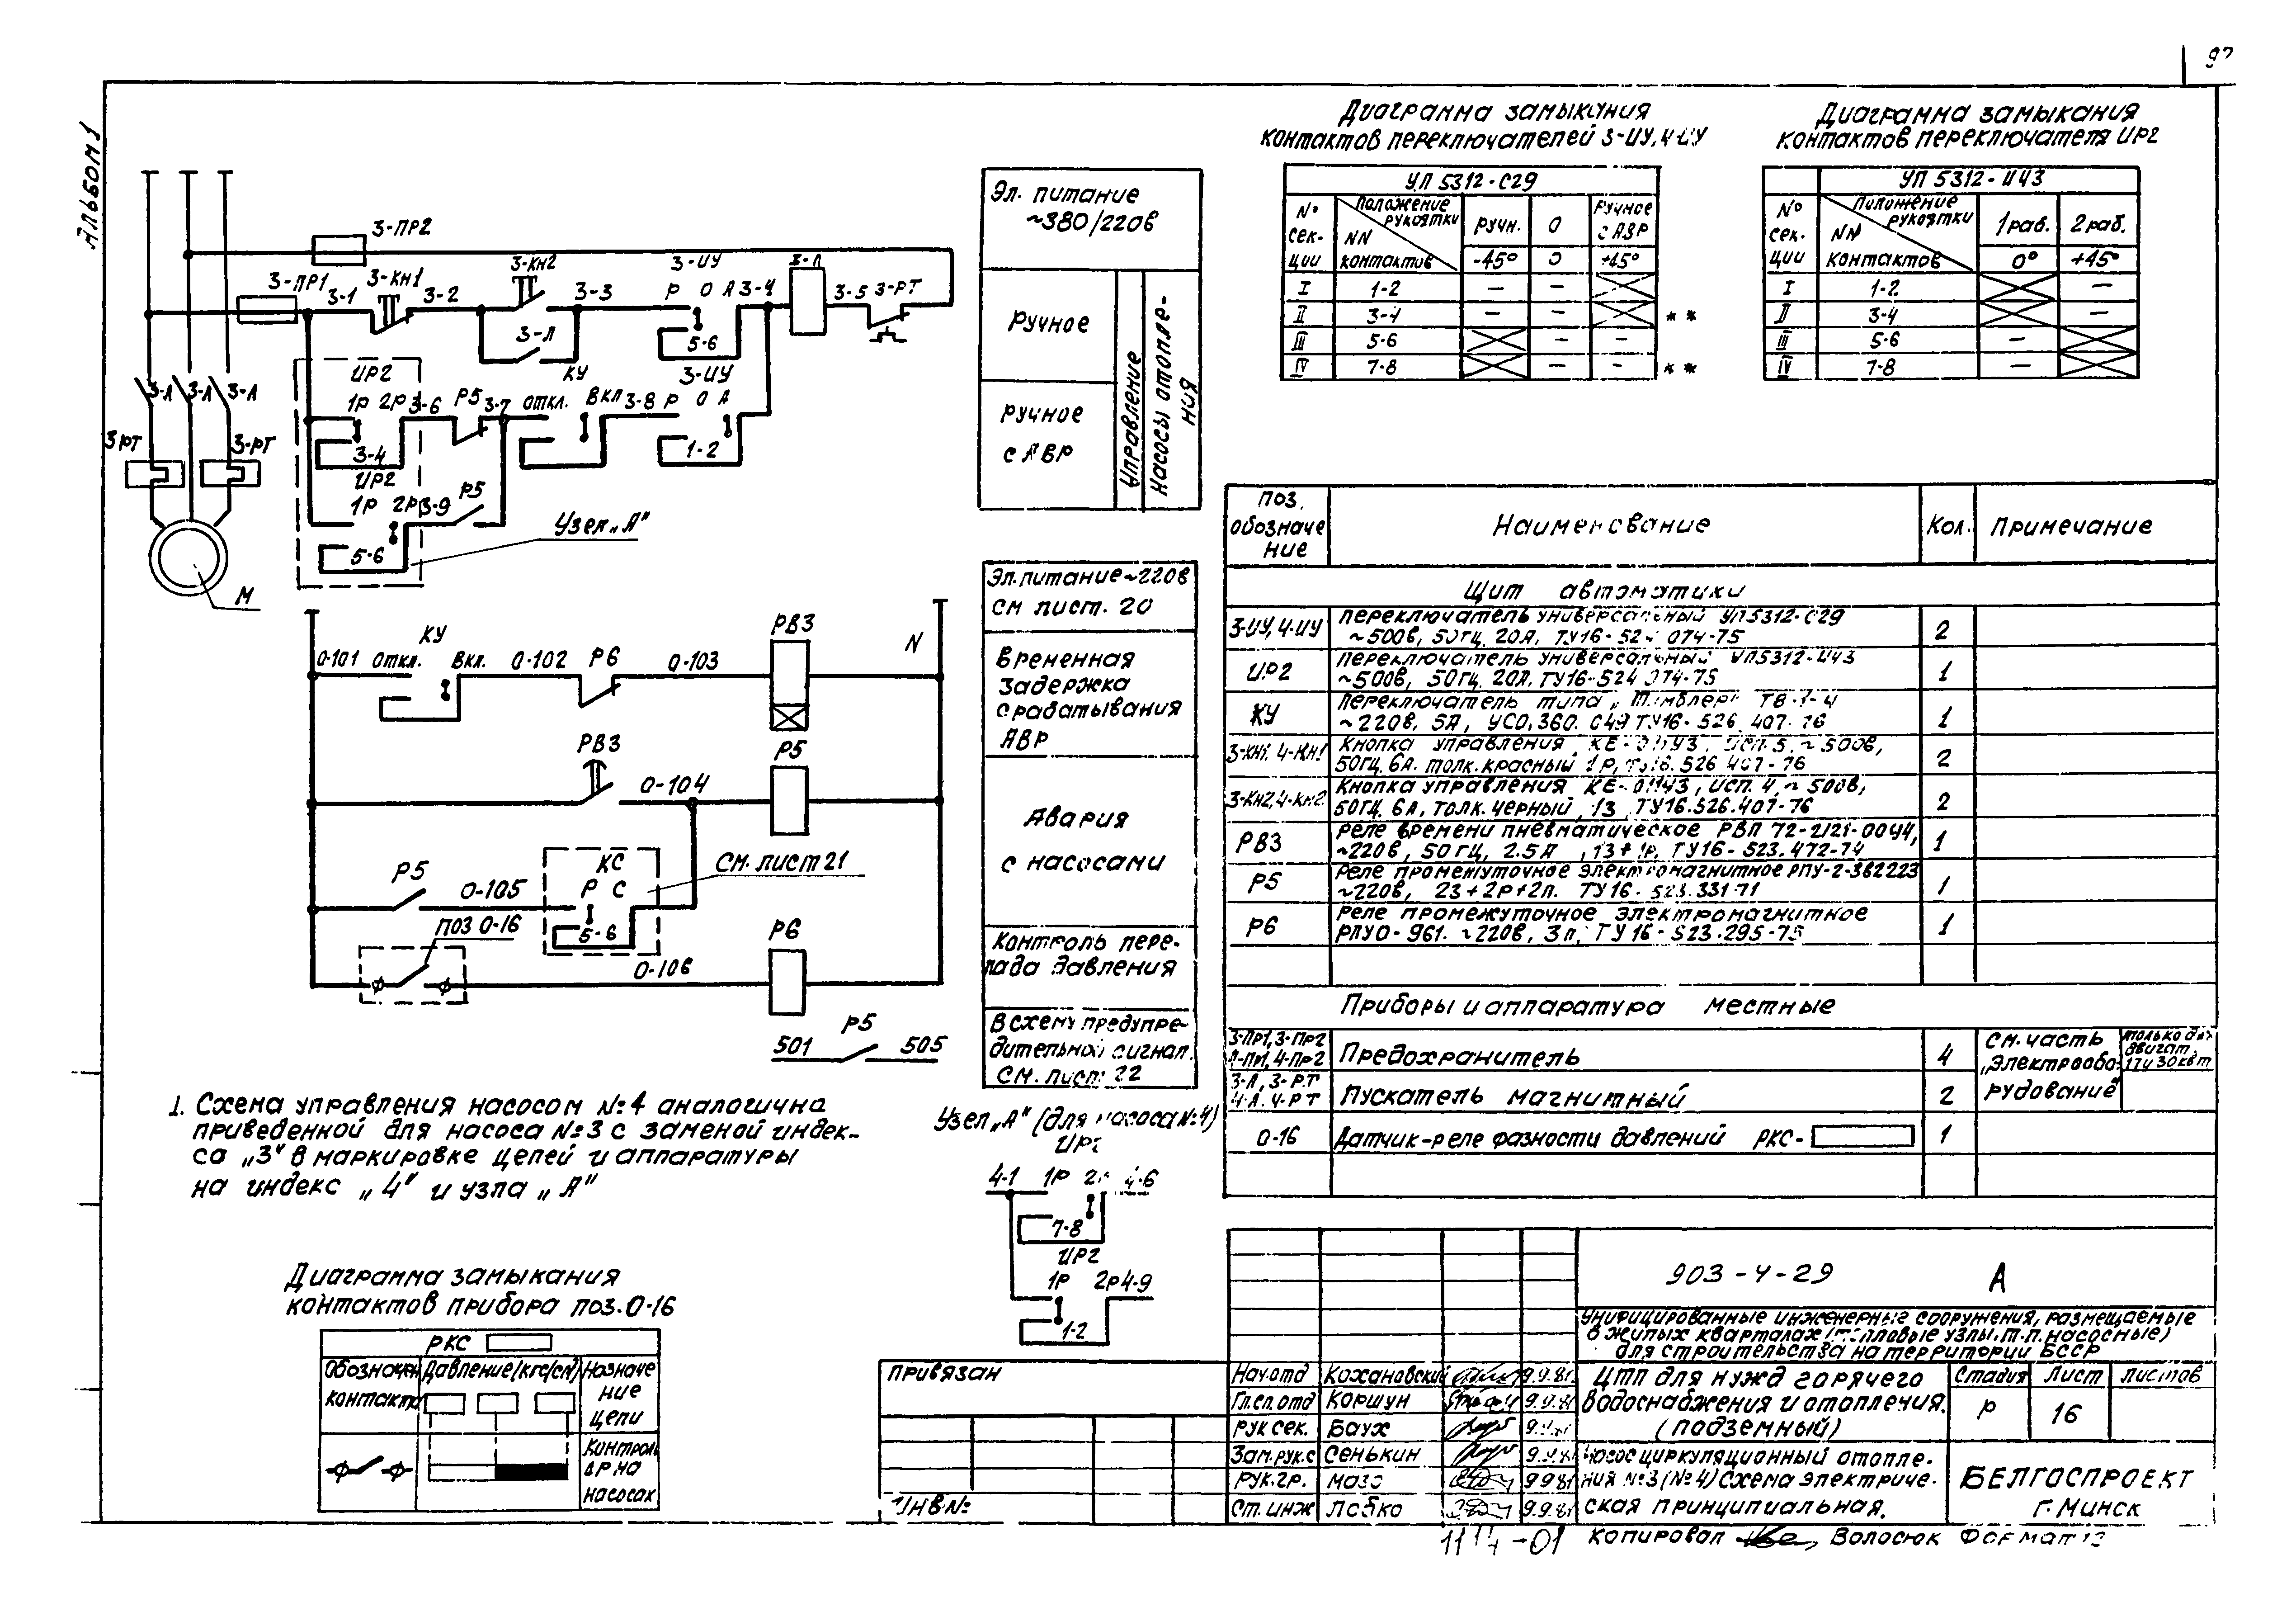 Альбом 1
3-ПР2
3-ПР1
3-1
3-КН1
3-2
3-КН2
3-3
3-ИУ
Р О А
3-4
3-Л
3-5
3-РТ
3-Л
5-6
ИР2
1Р 2Р
3-6
Р5
3-7
КУ
откл. Вкл
3-8
3-ИУ
Р О А
3-4
1-2
ИР2
1Р 2Р
3-9
Р5
5-6
Узел „А"
3-Л
3-Л
3-Л
3РТ
3-РТ
М
Эл. питание
~380/220в
Ручное
Ручное
с АВР
Управление
Насосы отопле-
ния
0-101
КУ
Откл. Вкл.
0-102
Р6
0-103
РВ3
N
РВ3
0-104
Р5
Р5
0-105
КС
Р С
5-6
См. лист 21
поз 0-16
0-106
Р6
501
Р5
505
Эл. питание ~220в
см лист. 20
Временная
задержка
срабатывания
АВР
Авария
с насосами
Контроль пере-
пада давления
В схему предупре-
дительной сигнал.
см. лист 22
1. Схема управления насосом №4 аналогична
приведенной для насоса №3 с заменой индек-
са „3" в маркировке цепей и аппаратуры
на индекс „4" и узла „А"
Узел „А" (для насоса №4)
ИР2
4-1
1Р
4-6
7-8
ИР2
1Р 2Р
4-9
1-2
Диаграмма замыкания
контактов прибора поз. 0-16
РКС
Давление (кгс/см²)
Назначе
ние
цепи
контакта
Контроль
ΔР на
насосах
Диаграмма замыкания
контактов переключателей 3-ИУ, 4-ИУ
УП 5312-С29
№ сек-ции
Положение рукоятки
NN контактов
Ручн.
0
Ручное с АВР
-45° 0 +45°
I 1-2 — —
II 3-4 — — * *
III 5-6 — —
IV 7-8 — — * *
Диаграмма замыкания
контактов переключателя ИР2
УП 5312-И43
№ сек-ции
Положение рукоятки
NN контактов
1 раб. 2 раб.
0° +45°
I 1-2 —
II 3-4 —
III 5-6 —
IV 7-8 —
Поз. обозначе ние
Наименование
Кол.
Примечание
Щит автоматики
3-ИУ, 4-ИУ
Переключатель универсальный УП5312-С29
~500в, 50гц. 20А, 074-75
2
ИР2
Переключатель универсальный УП5312-И43
~500в, 50гц. 20А. ТУ16-524 074-75
1
КУ
Переключатель типа
~220в, 5А, УСО.360. ТУ16-526. 407-76
1
3-КН1, 4-КН1
Кнопка управления исп. 5, ~500в,
50гц. 6А. толк. красный 1р, ТУ16.526 407-76
2
3-КН2, 4-КН2
Кнопка управления исп. 4, ~500в,
50гц. 6А, толк. черный, 1з ТУ16.526.407-76
2
РВ3
Реле времени пневматическое РВП 72-2121-00У4,
~220в, 50гц, 2.5А, 1з+1р. ТУ16-523.472-74
1
Р5
Реле промежуточное электромагнитное РПУ-2-362223
~220в, 2з+2р+2п. ТУ16-523.331-71
1
Р6
Реле промежуточное электромагнитное
РПУ0-961. ~220в, 3п, ТУ16-523.295-75
1
Приборы и аппаратура местные
3-Пр1, 3-Пр2
4-Пр1, 4-Пр2
Предохранитель
4
См. часть
„Электрообо-
рудование"
только для
двигат.
17 и 30 квт
3-Л, 3-РТ
4-Л, 4-РТ
Пускатель магнитный
2
0-16
Датчик-реле разности давлений РКС-
1
903-4-29
А
Унифицированные инженерные сооружения, размещаемые
в жилых кварталах (тепловые узлы, т.п. насосные)
для строительства на территории БССР
ЦТП для нужд горячего
водоснабжения и отопления.
(подземный)
Стадия Лист Листов
Р 16
Насос циркуляционный отопле-
ния №3 (№4) Схема электриче-
ская принципиальная.
БЕЛГОСПРОЕКТ
г. Минск
Нач. отд Кохановский 9.9.81
Гл. сп. отд Коршун 9.9.81
Рук сек. Баух
Зам. рук. с Сенькин 9.9.81
Рук. гр. Мазо 9.9.81
Ст. инж 9.9.81
Привязан
Инв №
Копировал Волосюк Формат